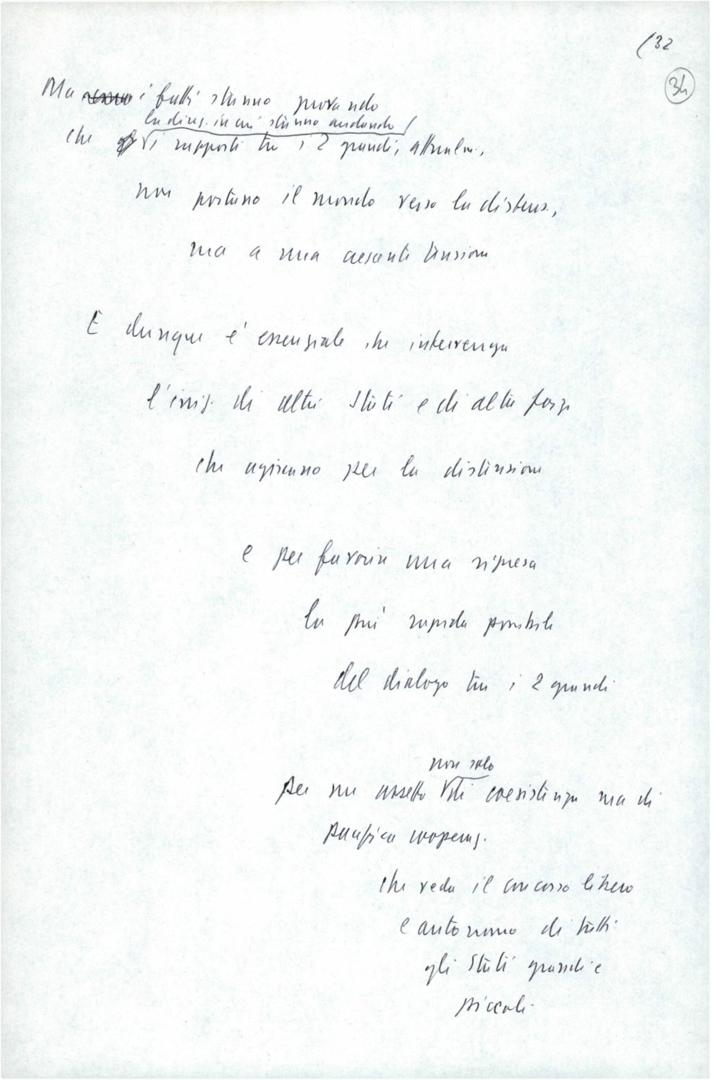 (32
34
Ma i fatti stanno provando
la direz. in cui stanno andando
che i rapporti tra i 2 grandi, attualm.,
non portano il mondo verso la distens.,
ma a una crescente tensione
E dunque è essenziale che intervenga
l'iniz. di altri Stati e di altre forze
che agiscano per la distensione
e per favorire una ripresa
la più rapida possibile
del dialogo tra i 2 grandi
non solo
per un assetto di coesistenza ma di
pacifica cooperaz.
che veda il concorso libero
e autonomo di tutti
gli Stati grandi e
piccoli.